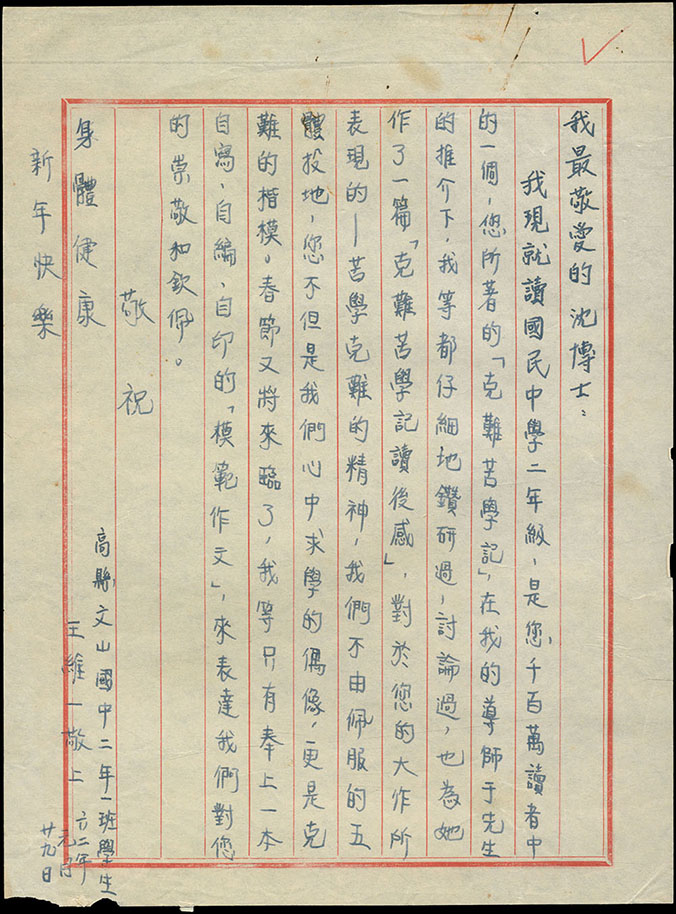 我最敬愛的沈博士：
我現就讀國民中學二年級，是您千百萬讀者中
的一個，您所著的「克難苦學記」，在我的導師于先生
的推介下，我等都仔細地鑽研過，討論過，也為她
作了一篇「克難苦學記讀後感」，對於您的大作所
表現的—苦學克難的精神，我們不由佩服的五
體投地，您不但是我們心中求學的偶像，更是克
難的楷模。春節又將來臨了，我等只有奉上一本
自寫、自編、自印的「模範作文」，來表達我們對您
的崇敬和欽佩。
敬祝
身體健康
新年快樂
高縣文山國中二年一班學生
王維一敬上
六二年
元月
廿九日